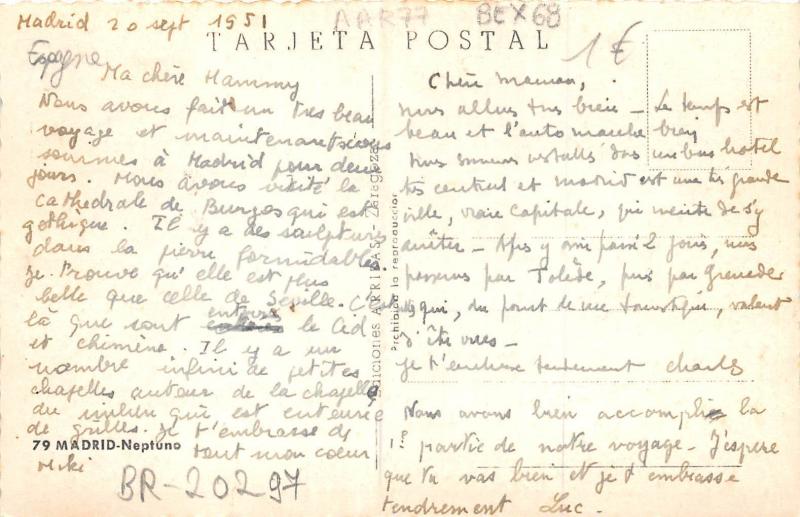 Madrid 20 sept 1951
Espagne
AAR77
BEX68
1€
TARJETA POSTAL
Ma chère Mammy
Nous avons fait un très beau
voyage et maintenant nous
sommes à Madrid pour deux
jours. Nous avons visité la
cathédrale de Burgos qui est
gothique. Il y a des sculptures
dans la pierre formidables.
Je trouve qu'elle est plus
belle que celle de Séville. C'est
là que sont entérrés le Cid
et chimène. Il y a un
nombre infini de petites
chapelles autour de la chapelle
du milieu qui est entourée
de grilles. Je t'embrasse de
tout mon coeur
Miki
79 MADRID-Neptuno
BR-20297
Ediciones ARRIBAS - Zaragoza
Prohibida la reproducción
Chère maman,
nous allons très bien - Le temps est
beau et l'auto marche bien
Nous sommes installés dans un bon hotel
très central et Madrid est une très grande
ville, vraie capitale, qui mérite de s'y
arrêter - Après y avoir passé 2 jours, nous
passerons par Tolède, puis par Grenade
qui, du point de vue touristique, valent
d'être vues -
je t'embrasse tendrement Charles
Nous avons bien accompli la
1ère partie de notre voyage - J'espère
que tu vas bien et je t'embrasse
tendrement Luc -